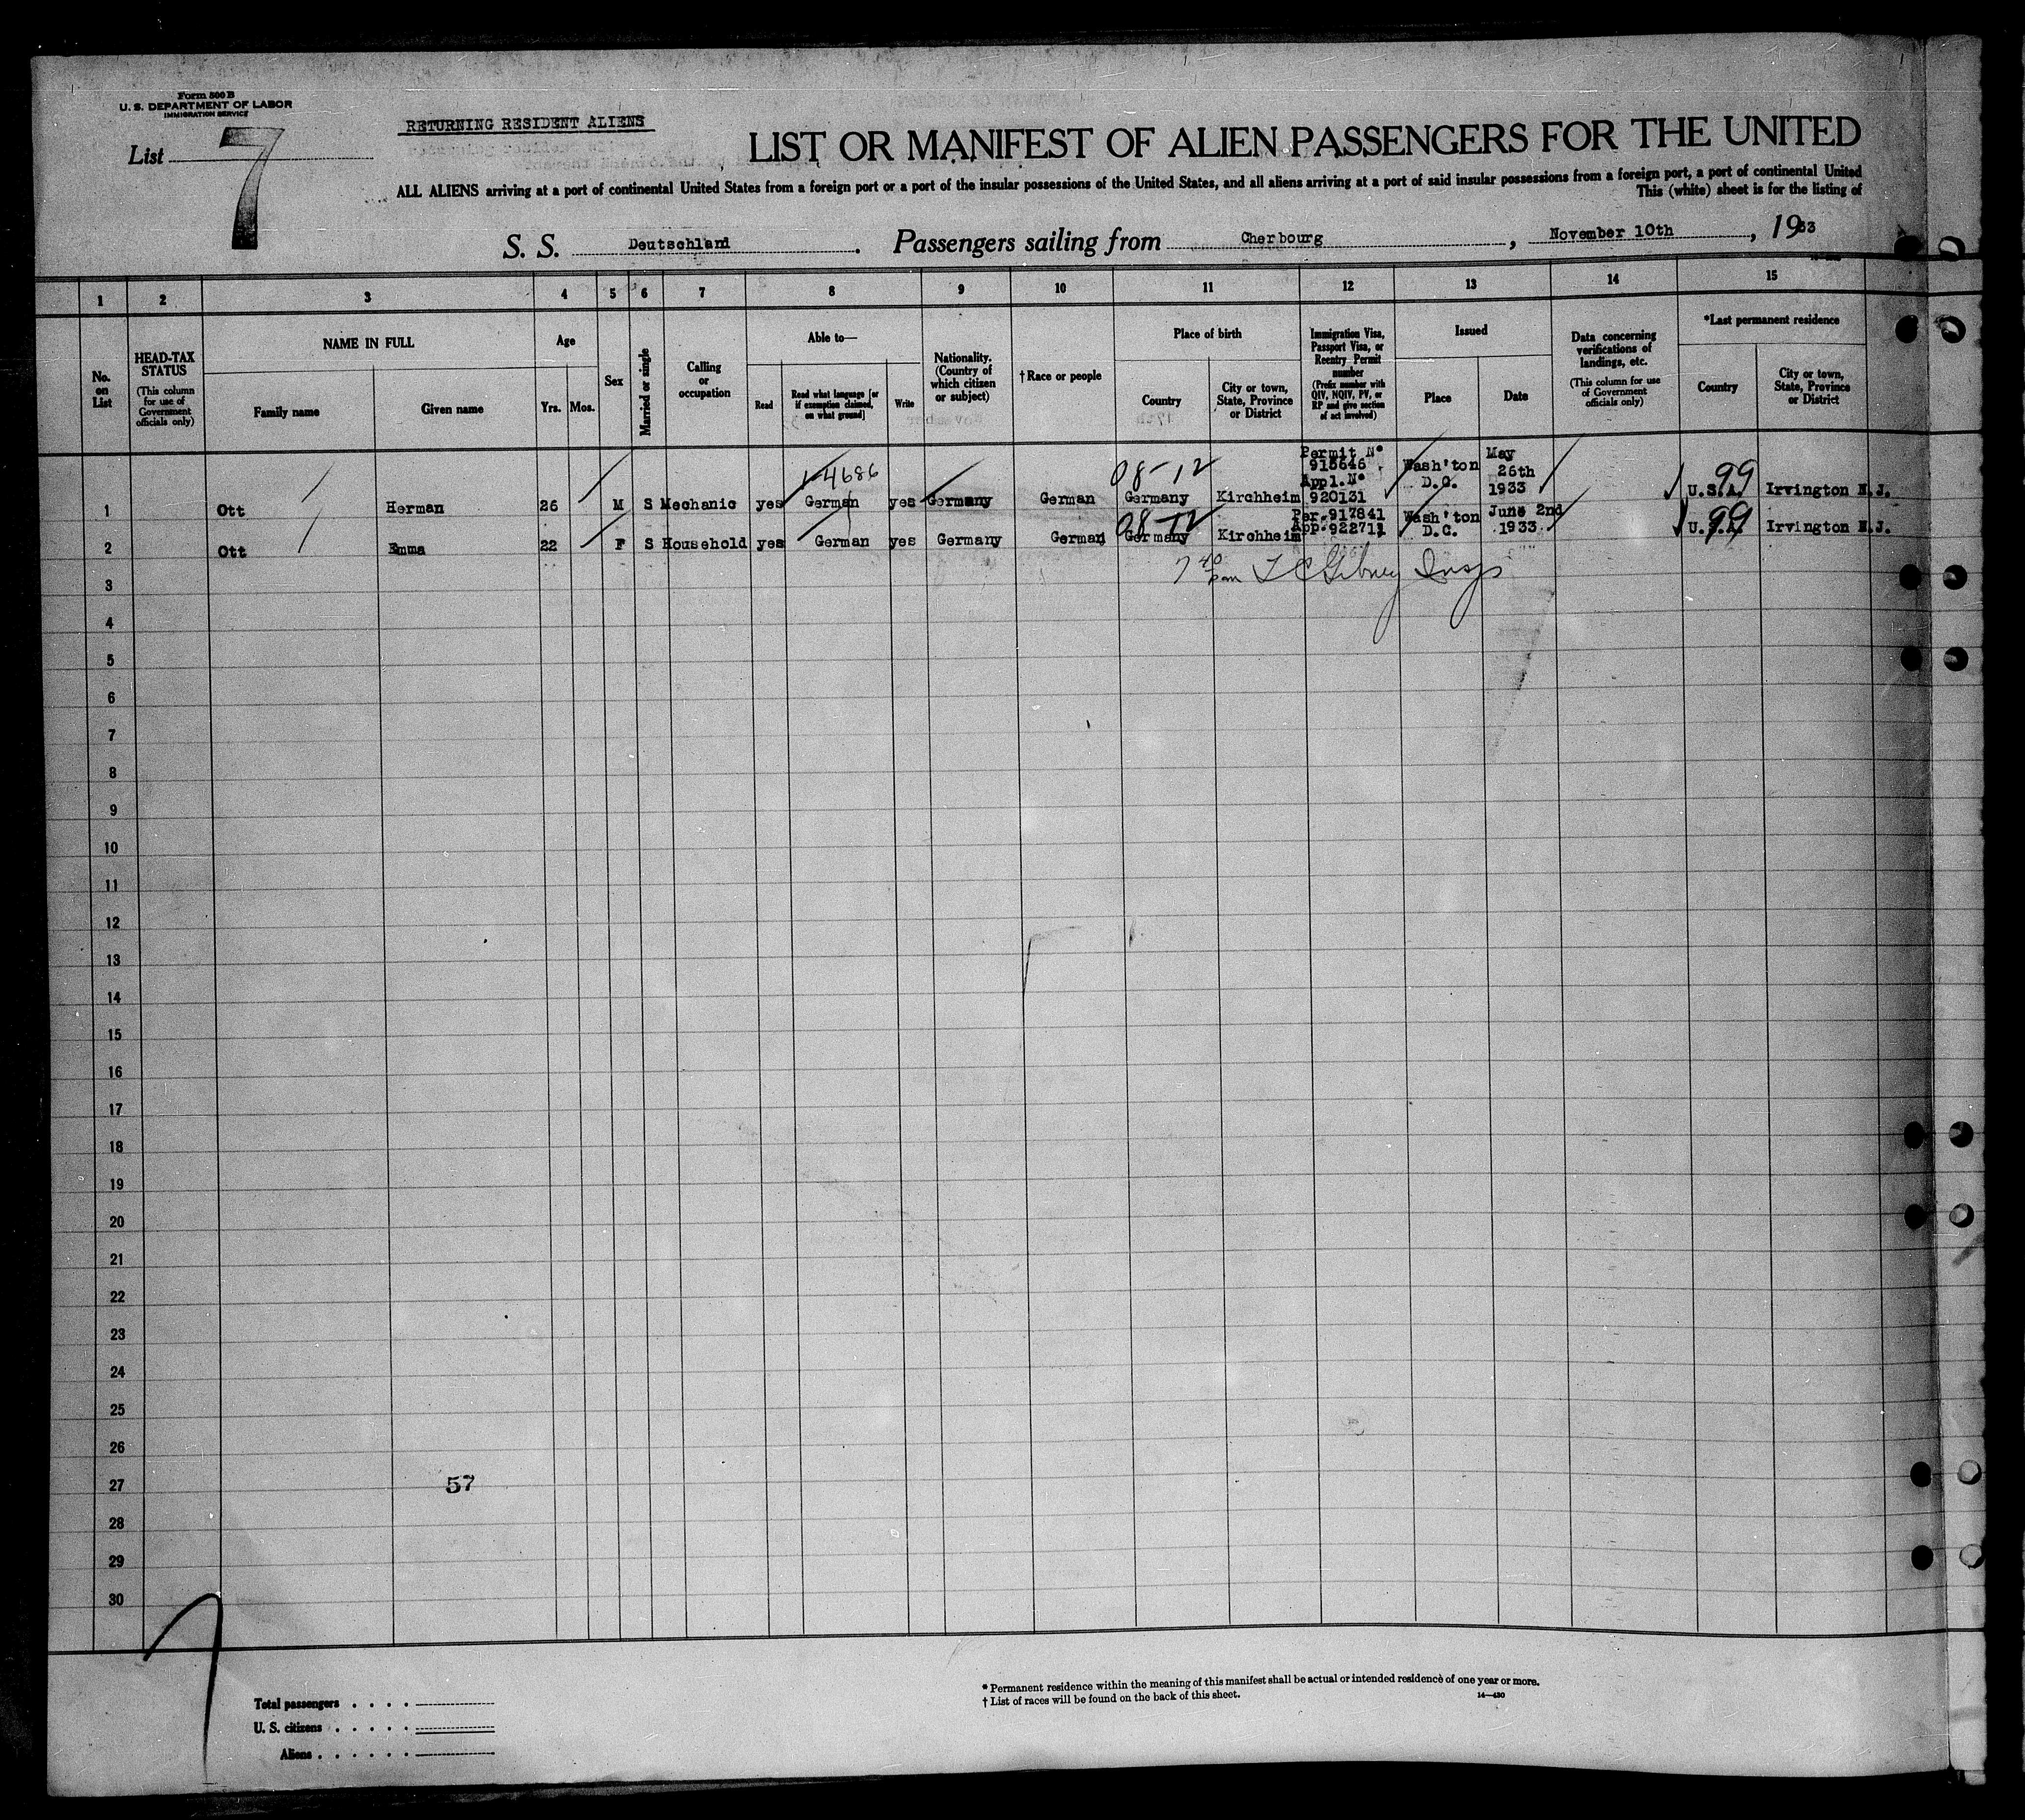 Form 500 B
U. S. DEPARTMENT OF LABOR
IMMIGRATION SERVICE
List 7
RETURNING RESIDENT ALIENS
LIST OR MANIFEST OF ALIEN PASSENGERS FOR THE UNITED
ALL ALIENS arriving at a port of continental United States from a foreign port or a port of the insular possessions of the United States, and all aliens arriving at a port of said insular possessions from a foreign port, a port of continental United
This (white) sheet is for the listing of
S. S. Deutschland. Passengers sailing from Cherbourg, November 10th, 1933
1 2 3 4 5 6 7 8 9 10 11 12 13 14 15
No. on List
HEAD-TAX STATUS
(This column for use of Government officials only)
NAME IN FULL
Family name
Given name
Age
Yrs. Mos.
Sex
Married or single
Calling or occupation
Able to—
Read
Read what language [or if exemption claimed, on what ground]
Write
Nationality. (Country of which citizen or subject)
†Race or people
Place of birth
Country
City or town, State, Province or District
Immigration Visa, Passport Visa, or Reentry Permit number
(Prefix number with QIV, NQIV, PV, or RP and give section of act involved)
Issued
Place
Date
Data concerning verifications of landings, etc.
(This column for use of Government officials only)
*Last permanent residence
Country
City or town, State, Province or District
1-4686
08-12
99
1 Ott Herman 26 M S Mechanic yes German yes Germany German Germany Kirchheim Permit No 915646 Appl. No 920131 Wash'ton D.C. May 26th 1933 U.S.A. Irvington N.J.
08-12
99
2 Ott Emma 22 F S Household yes German yes Germany German Germany Kirchheim Per.917841 App.922711 Wash'ton D.C. June 2nd 1933 U.S.A. Irvington N.J.
7 40 pm Insp
3
4
5
6
7
8
9
10
11
12
13
14
15
16
17
18
19
20
21
22
23
24
25
26
27 57
28
29
30
* Permanent residence within the meaning of this manifest shall be actual or intended residence of one year or more.
† List of races will be found on the back of this sheet.
14—430
Total passengers . . . .
U. S. citizens . . . . .
Aliens . . . . . .